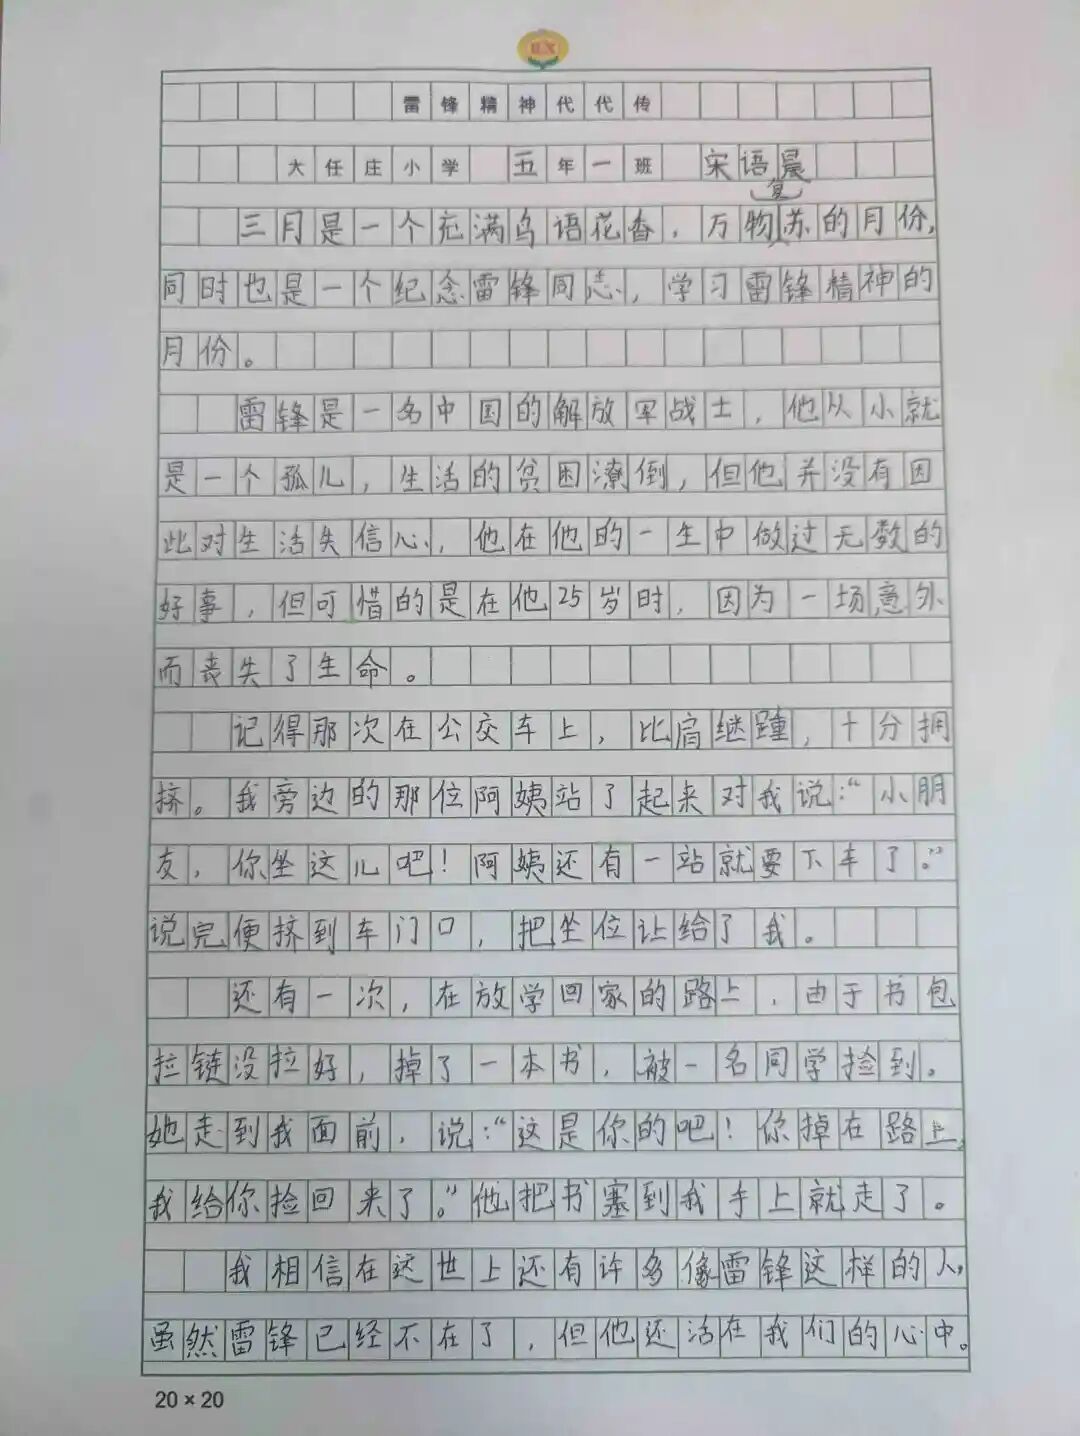 雷锋精神代代传
大任庄小学 五年一班 宋语晨
三月是一个充满鸟语花香，万物复苏的月份，
同时也是一个纪念雷锋同志，学习雷锋精神的
月份。
雷锋是一名中国的解放军战士，他从小就
是一个孤儿，生活的贫困潦倒，但他并没有因
此对生活失信心，他在他的一生中做过无数的
好事，但可惜的是在他25岁时，因为一场意外
而丧失了生命。
记得那次在公交车上，比肩继踵，十分拥
挤。我旁边的那位阿姨站了起来对我说：“小朋
友，你坐这儿吧！阿姨还有一站就要下车了。”
说完便挤到车门口，把坐位让给了我。
还有一次，在放学回家的路上，由于书包
拉链没拉好，掉了一本书，被一名同学捡到。
她走到我面前，说：“这是你的吧！你掉在路上，
我给你捡回来了。”他把书塞到我手上就走了。
我相信在这世上还有许多像雷锋这样的人，
虽然雷锋已经不在了，但他还活在我们的心中。
20×20